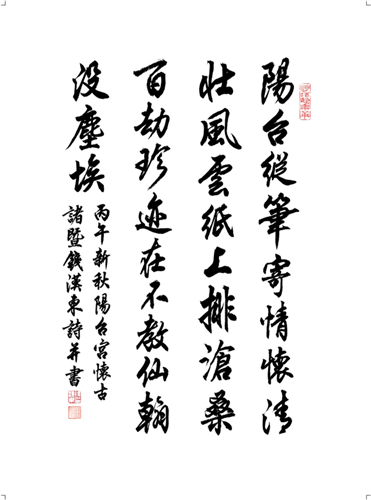 陽台縱筆寄情懷清
壯風雲紙上排滄桑
百劫珍迹在不教仙翰
沒塵埃
丙午新秋陽台宮懷古
諸暨錢漢東詩并書